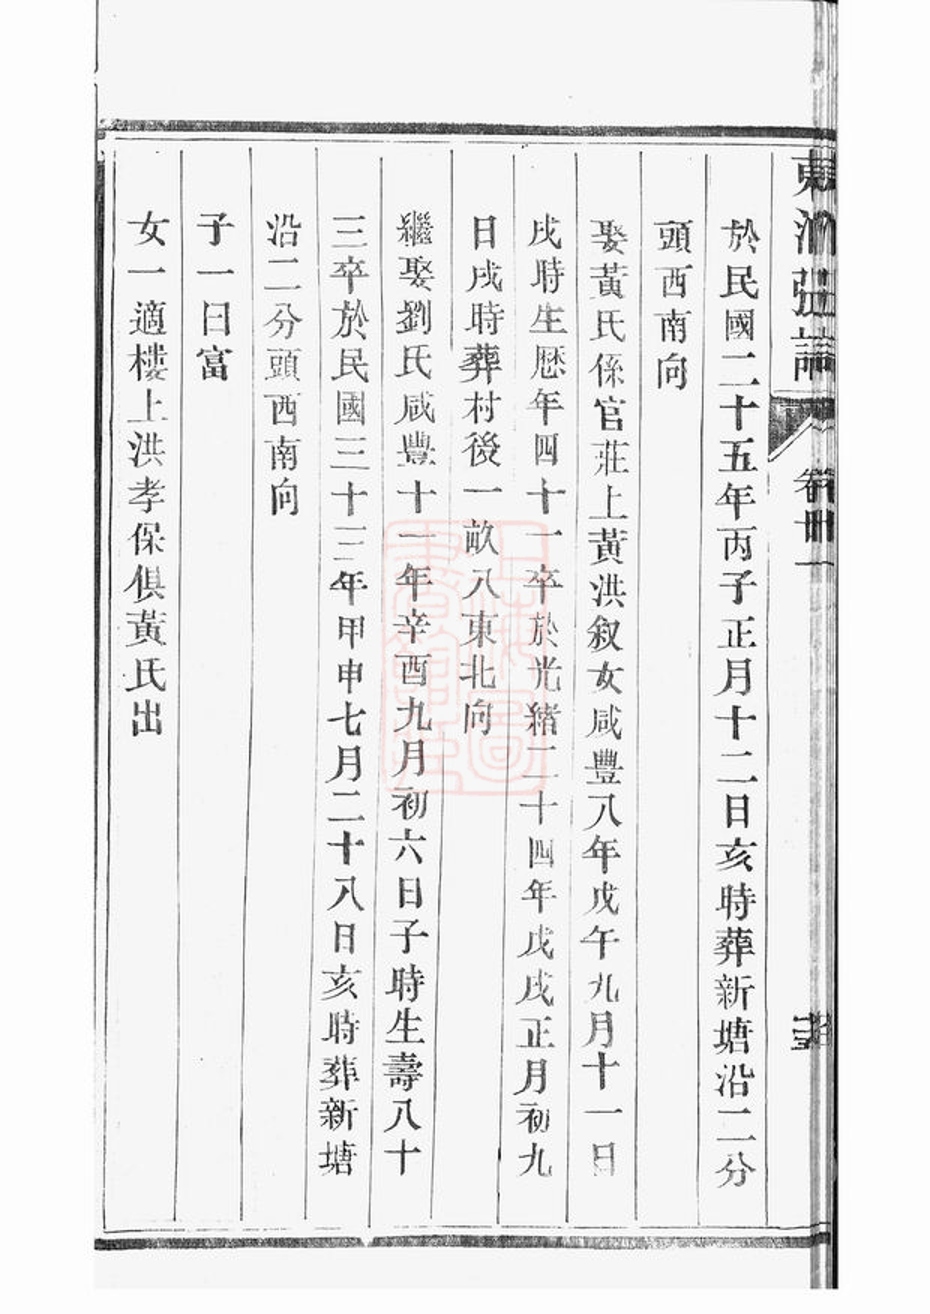 於民國二十五年丙子正月十二日亥時葬新塘沿二分
頭西南向
娶黃氏係官莊上黃洪叙女咸豐八年戊午九月十一日
戌時生歷年四十一卒於光緒二十四年戊戌正月初九
日戌時葬村後一畝八東北向
繼娶劉氏咸豐十一年辛酉九月初六日子時生壽八十
三卒於民國三十三年甲申七月二十八日亥時葬新塘
沿二分頭西南向
子一曰富
女一適樓上洪孝保俱黃氏出
卷廿一